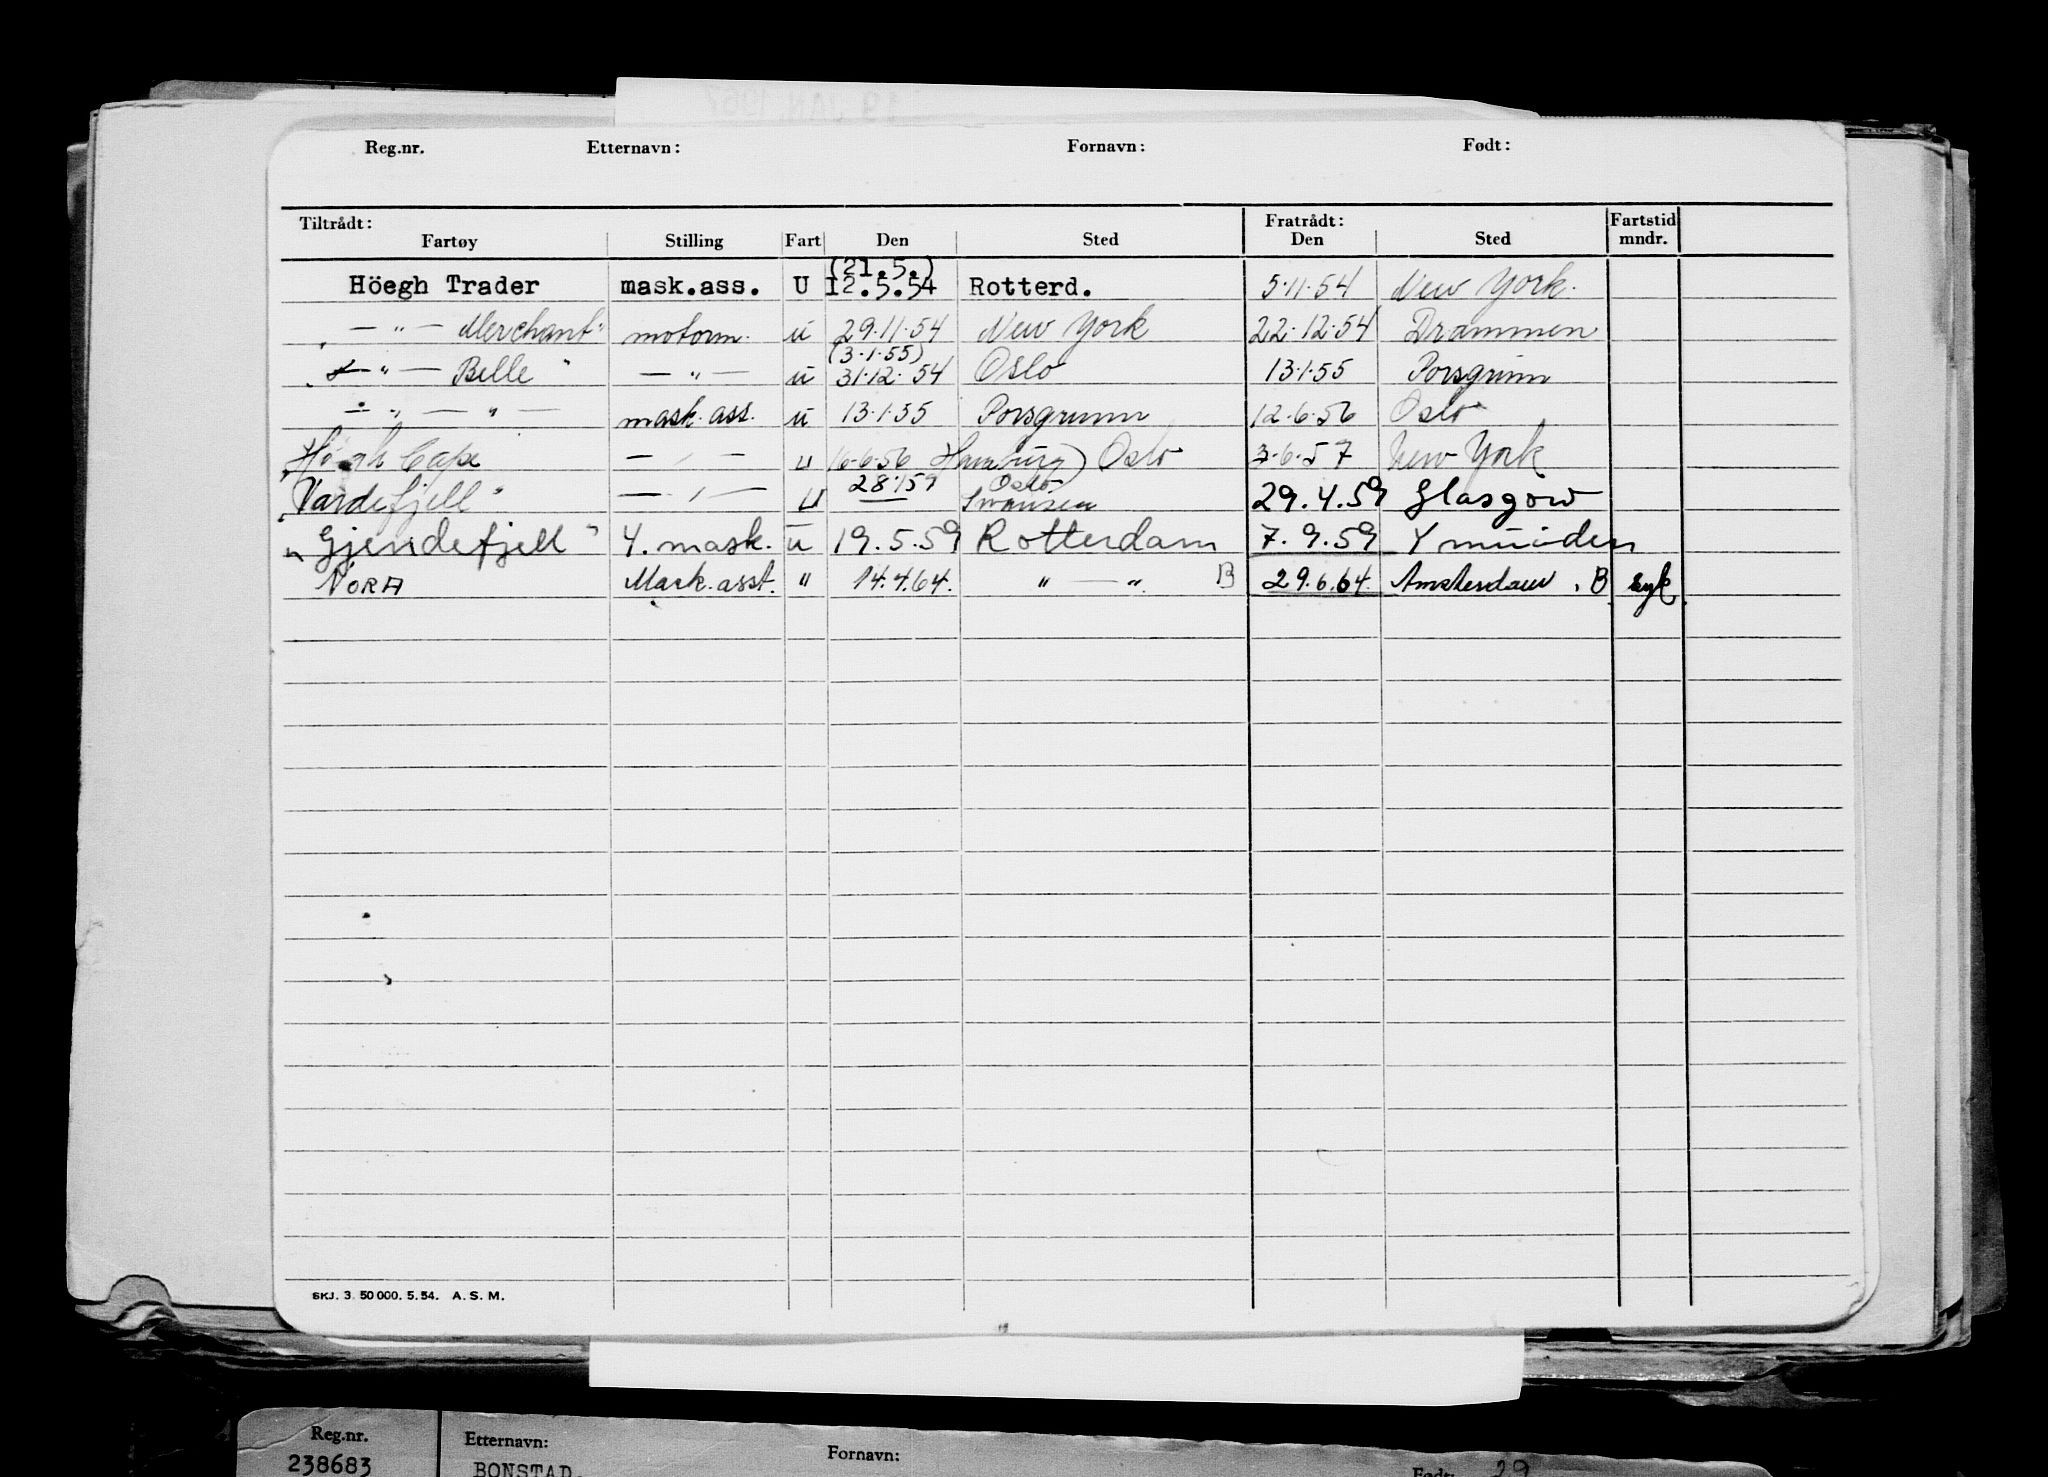 Reg.nr. Etternavn: Fornavn: Født:
Tiltrådt: Fratrådt: Fartstid
Fartøy Stilling Fart Den Sted Den Sted mndr.
(21.5.)
Höegh Trader mask.ass. U 12.5.54 Rotterd. 5.11.54 New York.
„ — " — Merchant" motorm. u 29.11.54 New York 22.12.54 Drammen
(3.1.55)
„ — " — Belle " — " — u 31.12.54 Oslo 13.1.55 Porsgrunn
— " — " — mask. ass. u 13.1.55 Porsgrunn 12.6.56 Oslo
„Høegh Cape — " — u 16.6.56 Hamburg) Oslo 3.6.57 New York
Oslo
„Vardefjell" — " — u 28.1.59 Swansea 29.4.59 Glasgow
„Gjendefjell" 4. mask. u 19.5.59 Rotterdam 7.9.59 Ymuiden
NORA Mask. asst. " 14.4.64. " — ". B 29.6.64. Amsterdam . B syk.
SKJ. 3. 50 000. 5. 54. A. S. M.
Reg.nr. Etternavn: Fornavn: Født: 29
238683 BONSTAD.